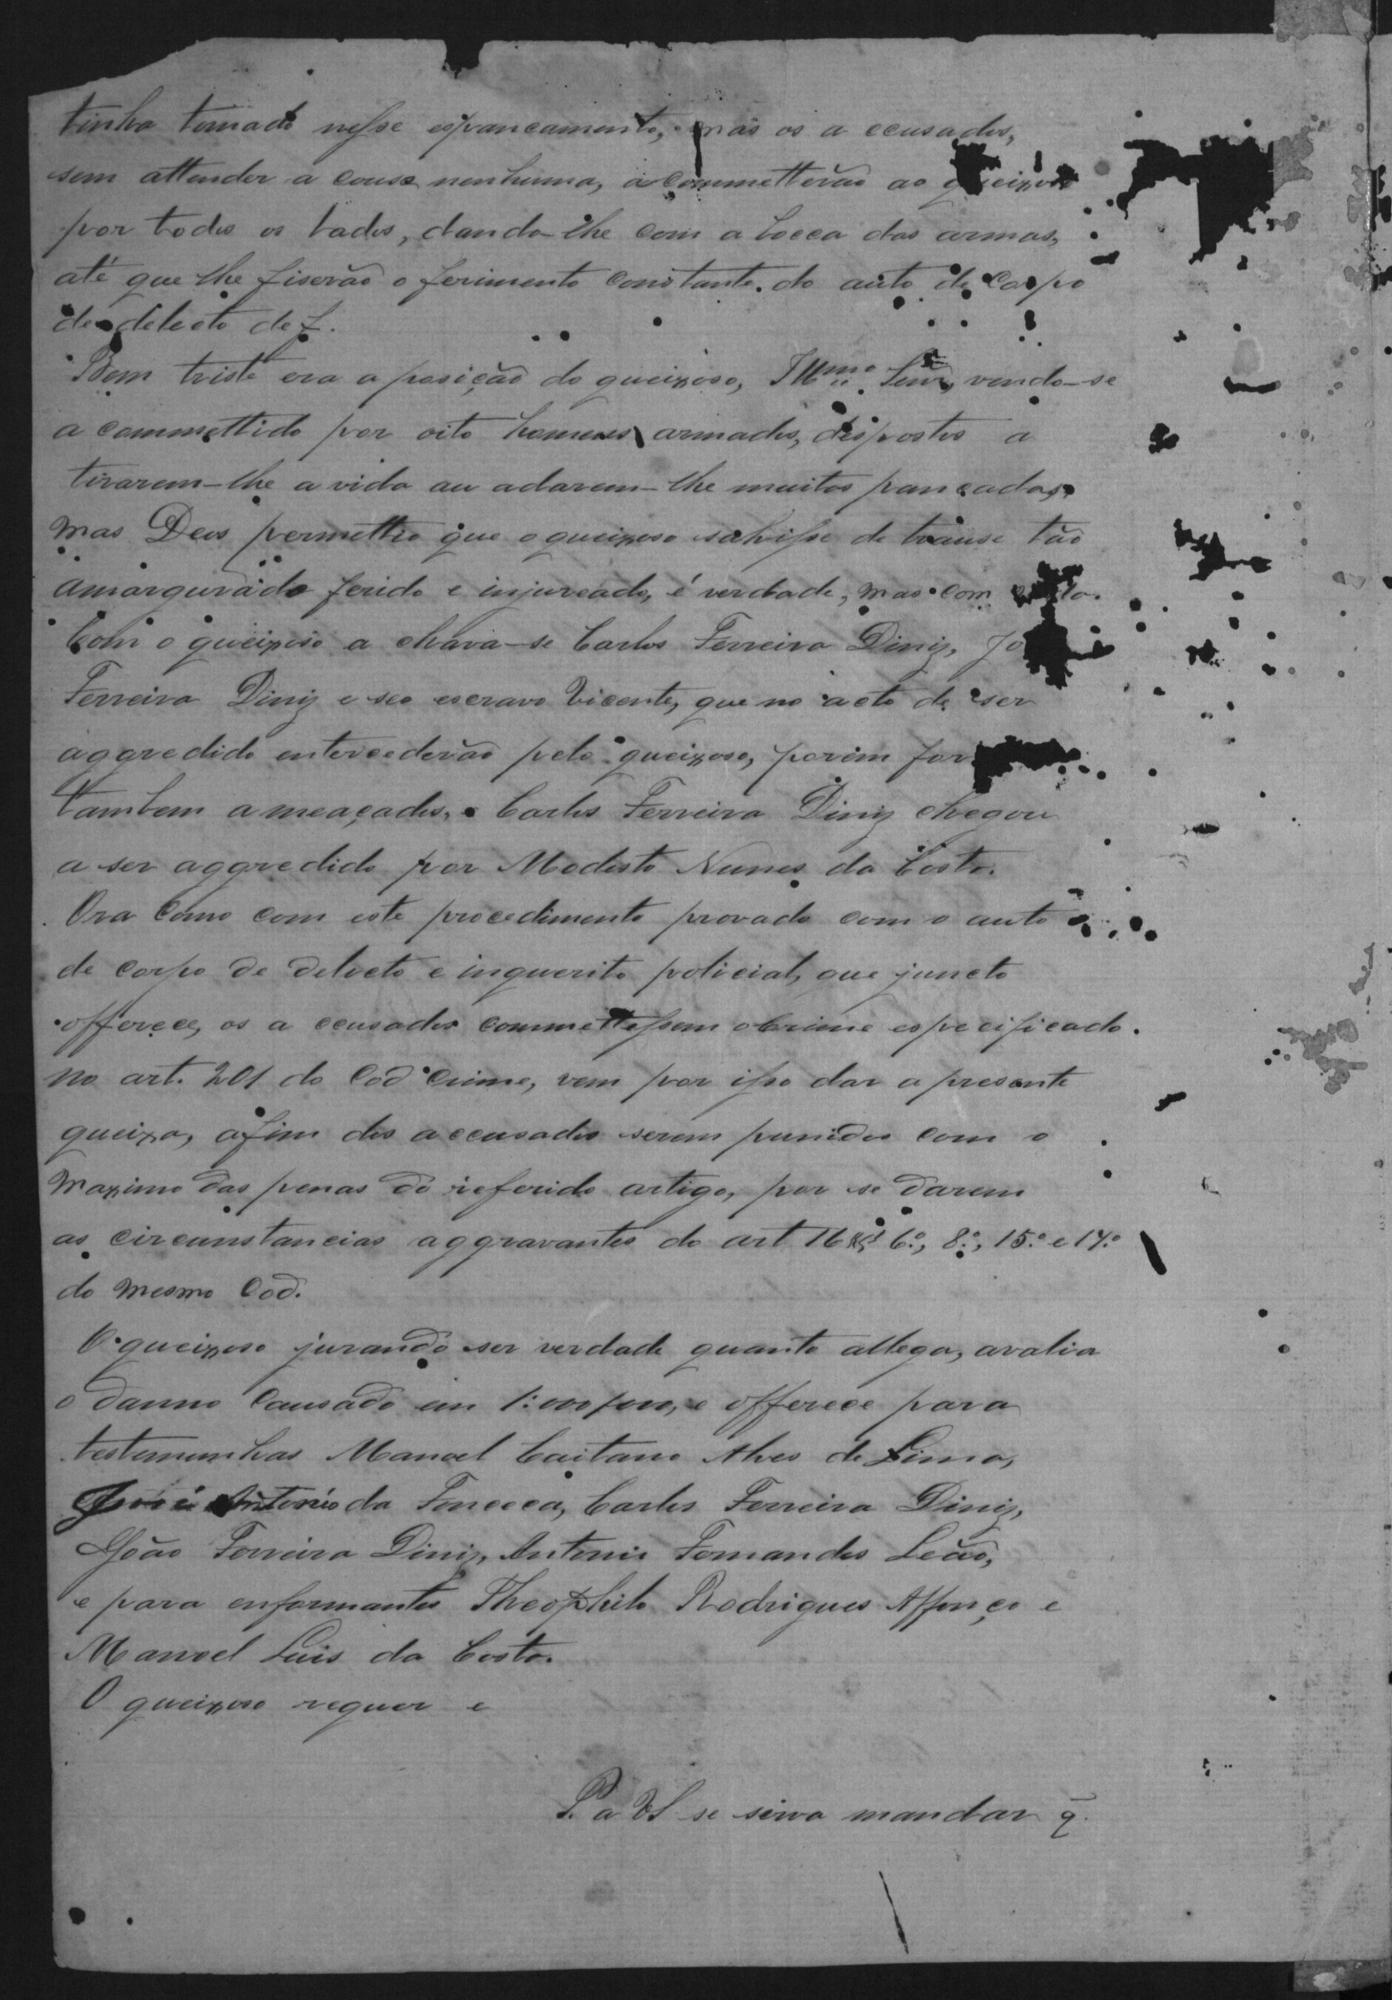 tinha tomado nesse espancamento, mas os accusados,
sem attender a cousa nenhuma, acommetterão ao queixoso
por todos os lados, dando-lhe com a bocca das armas,
até que lhe fiserão o ferimento constante do auto de corpo
de delecto de f.
Bem triste era a posição do queixoso, Illmo Senr, vendo-se
acommettido por oito homens armados, dispostos a
tirarem-lhe a vida au adarem-lhe muitas pancadas,
mas Deos permettio que o queixoso sahisse de transe tão
amargurado ferido e injureado, é verdade, mas com
Com o queixoso achava-se Carlos Ferreira Diniz, Jo
Ferreira Diniz e seo escravo Vicente, que no acto de ser
aggredido entercederão pelo queixoso, porem for
tambem ameaçados, e Carlos Ferreira Diniz chegou
a ser aggredido por Modesto Nunes da Costa.
Ora como com este procedimento provado com o auto
de corpo de delecto e inquerito policial, que juncto
offerece, os accusados commettessem o crime especificado
no art. 201 do Cod Crime, vem por isso dar a presente
queixa, afim dos accusados serem punidos com o
maximo das penas do referido artigo, por se darem
as circunstancias aggravantes do art 16 §§ 6.º, 8.º, 15.º e 17.º
do mesmo Cod.
O queixoso jurando ser verdade quanto allega, avalia
o danno causado em 1:000$000, e offerece para
testemunhas Manoel Caitano Alves de Lima,
José Antonio da Fonceca, Carlos Ferreira Diniz,
João Ferreira Diniz, Antonio Fernandes Leão,
e para enformantes Theophilo Rodrigues Affonço e
Manoel Luis da Costa.
O queixoso requer e
P. a VS se sirva mandar q.